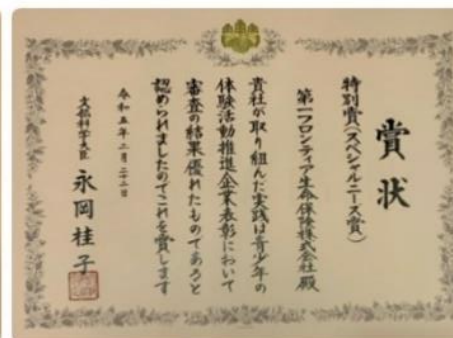 賞状
特別賞(スペシャルニーズ賞)
第一フロンティア生命保険株式会社殿
貴社が取り組んだ実践は青少年の
体験活動推進企業表彰において
審査の結果優れたものであると
認められましたのでこれを賞します
令和五年二月二十二日
文部科学大臣 永岡桂子